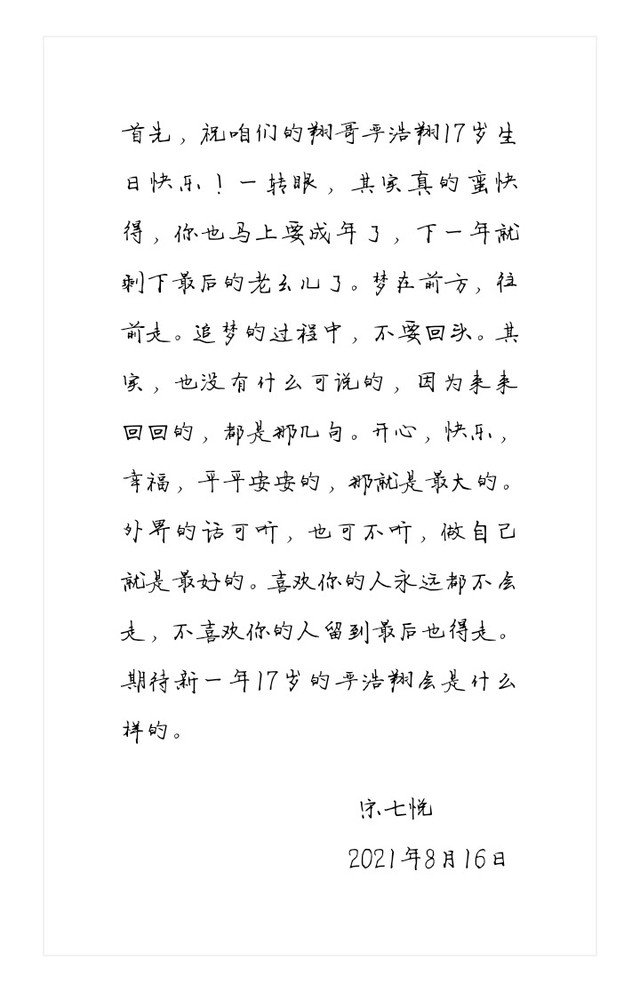 首先，祝咱们的翔哥严浩翔17岁生
日快乐！一转眼，其实真的蛮快
得，你也马上要成年了，下一年就
剩下最后的老幺儿了。梦在前方，往
前走。追梦的过程中，不要回头。其
实，也没有什么可说的，因为来来
回回的，都是那几句。开心，快乐，
幸福，平平安安的，那就是最大的。
外界的话可听，也可不听，做自己
就是最好的。喜欢你的人永远都不会
走，不喜欢你的人留到最后也得走。
期待新一年17岁的严浩翔会是什么
样的。
宋七悦
2021年8月16日